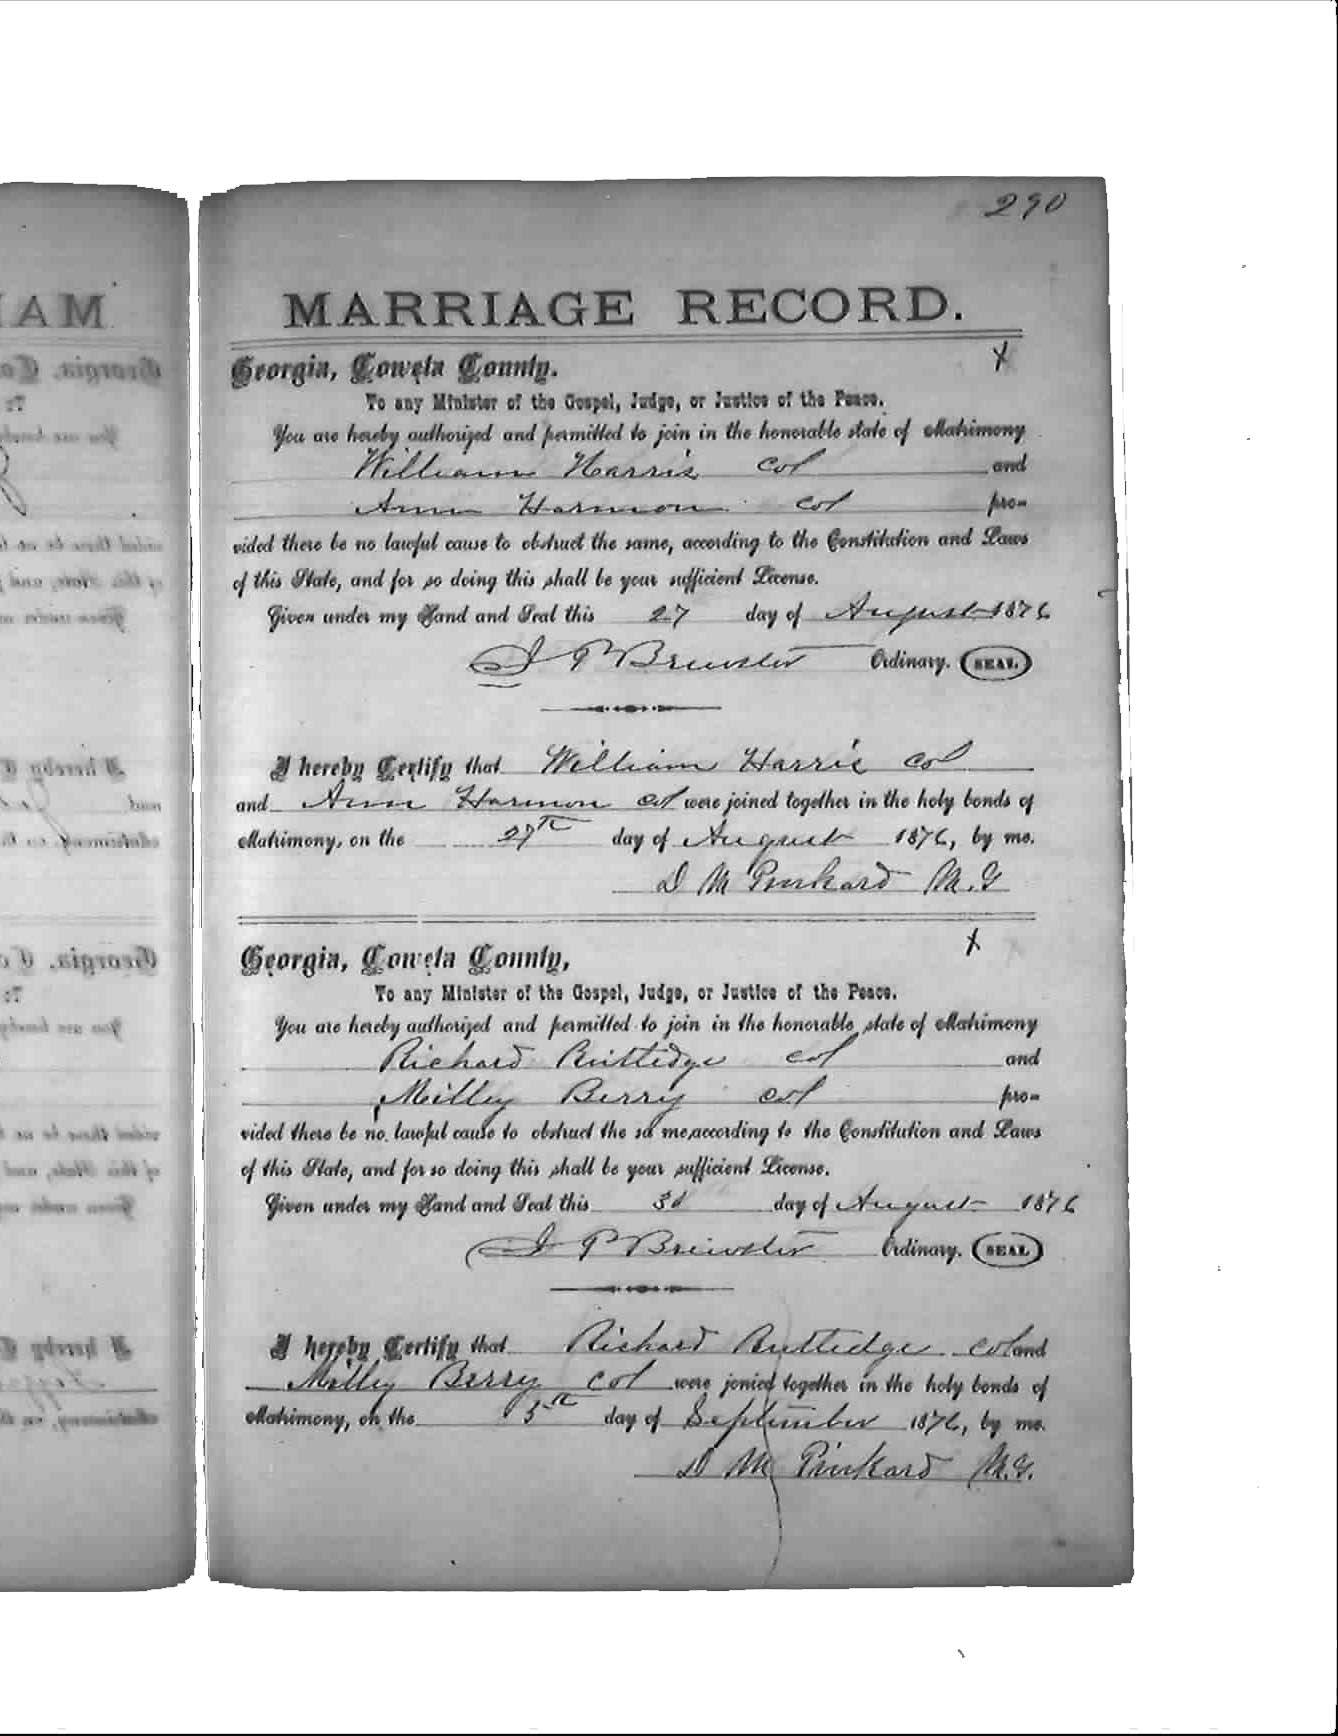 290
MARRIAGE RECORD.
Georgia, Coweta County.
X
To any Minister of the Gospel, Judge, or Justice of the Peace.
You are hereby authorized and permitted to join in the honorable state of Matrimony
William Harris col and
Ann Harmon col pro-
vided there be no lawful cause to obstruct the same, according to the Constitution and Laws
of this State, and for so doing this shall be your sufficient License.
Given under my Hand and Seal this 27 day of August 1876
J P Brewster Ordinary. SEAL
I hereby Certify that William Harris col
and Ann Harmon col were joined together in the holy bonds of
Matrimony, on the 27th day of August 1876, by me.
D M Pinkard M.G
Georgia, Coweta County,
X
To any Minister of the Gospel, Judge, or Justice of the Peace.
You are hereby authorized and permitted to join in the honorable state of Matrimony
Richard Ruttedge col and
Milley Berry col pro-
vided there be no lawful cause to obstruct the sa me, according to the Constitution and Laws
of this State, and for so doing this shall be your sufficient License.
Given under my Hand and Seal this day of August 1876
J P Brewster Ordinary. SEAL
I hereby Certify that Richard Ruttedge col and
Milley Berry col were jonied together in the holy bonds of
Matrimony, on the 5th day of September 1876, by me.
D M Pinkard M.G.